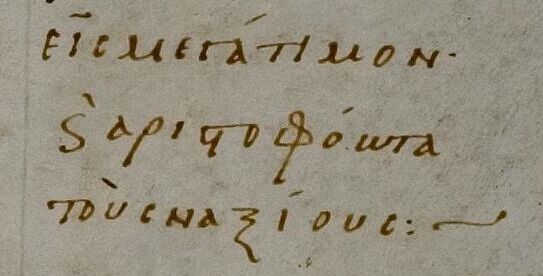 εἰς μεγάτιμον·
ϗ̀ ἀριϛοφόωτα
τοὺς ναξίους:~